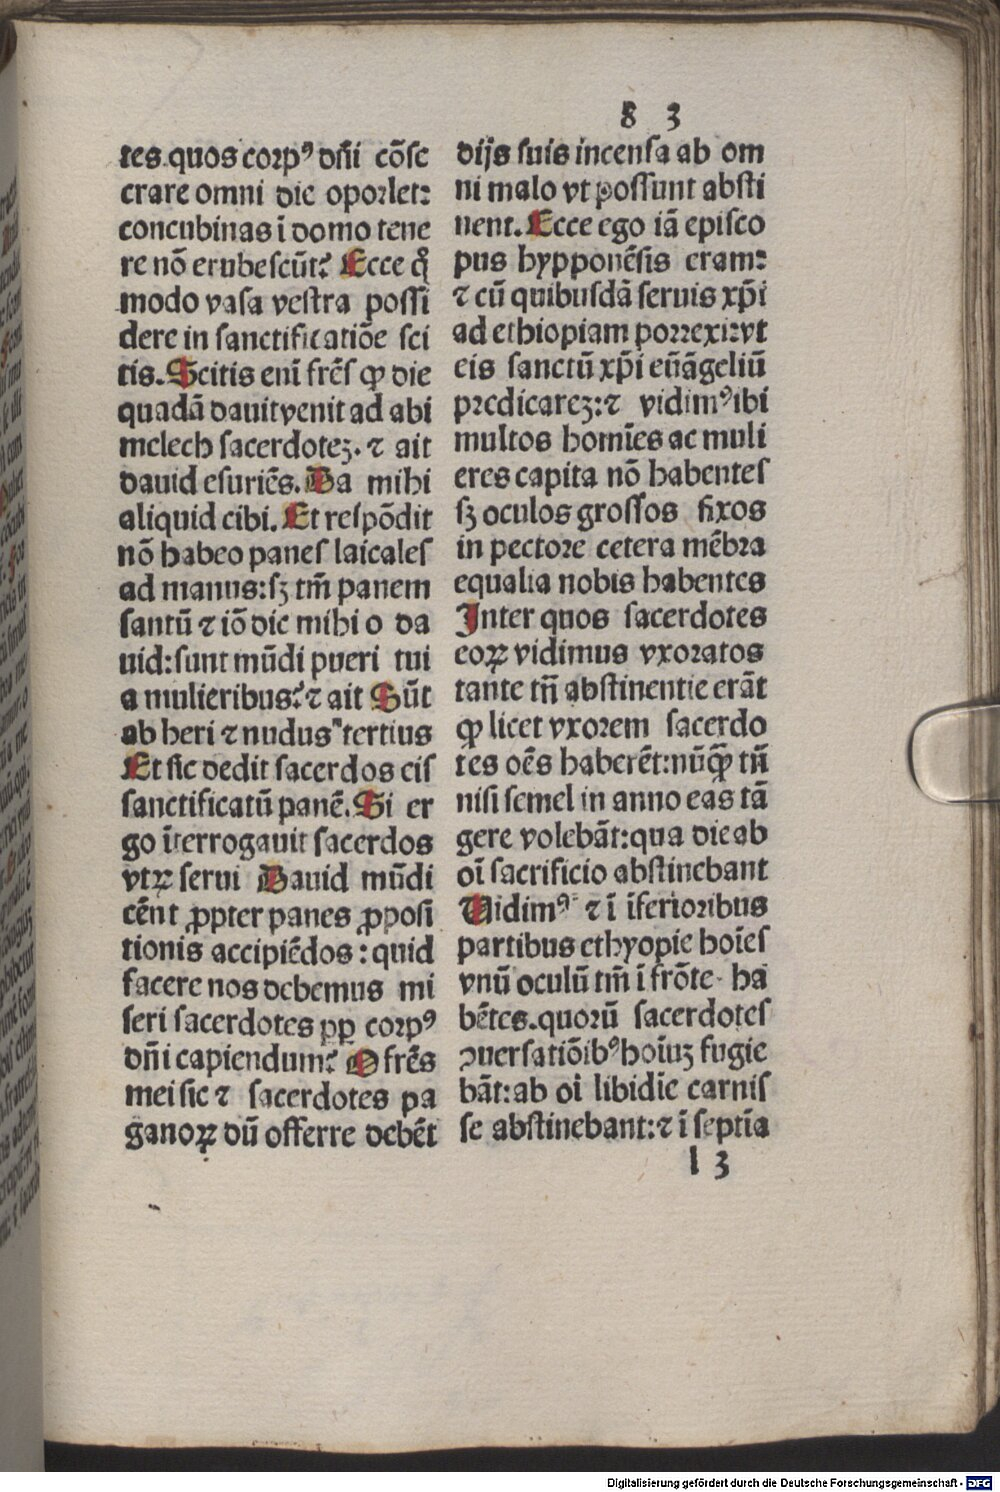 8 3
tes quos corpꝰ dñi cõse
crare omni die oportet:
concubinas ĩ domo tene
re nõ erubescũt? Ecce q̊
modo vasa vestra possi
dere in sanctificatiõe sci
tis. Scitis enĩ frẽs ꝙ die
quadã dauit venit ad abi
melech sacerdoteʒ. ⁊ ait
dauid esuriẽs. Da mihi
aliquid cibi. Et respõdit
nõ habeo panes laicales
ad manus: sʒ tm̃ panem
santũ ⁊ iõ dic mihi o da
uid: sunt mũdi pueri tui
a mulieribus? ⁊ ait Sũt
ab heri ⁊ nudus "tertius
Et sic dedit sacerdos eis
sanctificatũ panẽ. Si er
go ĩterrogauit sacerdos
vtꝝ serui Dauid mũdi
cẽnt ꝓpter panes ꝓposi
tionis accipiẽdos : quid
facere nos debemus mi
seri sacerdotes ꝓp̱ corpꝰ
dñi capiendum? O frẽs
mei sic ⁊ sacerdotes pa
ganoꝝ dũ offerre debẽt
dijs suis incensa ab om
ni malo vt possunt absti
nent. Ecce ego iã episco
pus hypponẽsis eram:
⁊ cũ quibusdã seruis xp̃i
ad ethiopiam porrexi: vt
eis sanctũ xp̃i eũãgeliũ
predicareʒ: ⁊ vidimꝰ ibi
multos homĩes ac muli
eres capita nõ habentes
sʒ oculos grossos fixos
in pectore cetera mẽbra
equalia nobis habentes
Inter quos sacerdotes
eoꝝ vidimus vxoratos
tante tñ abstinentie erãt
ꝙ licet vxorem sacerdo
tes oẽs haberẽt: nũꝙ̃ tñ
nisi semel in anno eas tã
gere volebãt: qua die ab
oĩ sacrificio abstinebant
Vidimꝰ ⁊ ĩ ĩferioribus
partibus ethyopie hoĩes
vnũ oculũ tm̃ ĩ frõte ha
bẽtes. quorũ sacerdotes
ꝯuersatiõibꝰ hoĩuʒ fugie
bãt: ab oĩ libidĩe carnis
se abstinebant: ⁊ ĩ septĩa
l 3
Digitalisierung gefördert durch die Deutsche Forschungsgemeinschaft - DFG